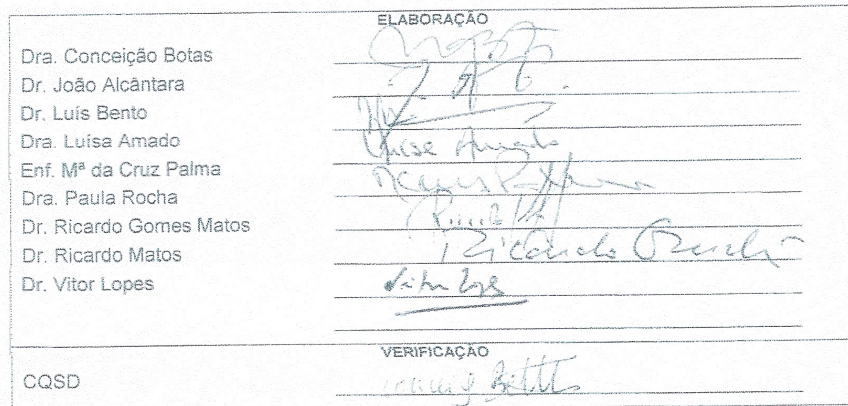 ELABORAÇÃO
Dra. Conceição Botas
Dr. João Alcântara
Dr. Luís Bento
Dra. Luísa Amado Luisa Amado
Enf. Mª da Cruz Palma
Dra. Paula Rocha
Dr. Ricardo Gomes Matos
Dr. Ricardo Matos Ricardo
Dr. Vitor Lopes Vitor Lopes
VERIFICAÇÃO
CQSD